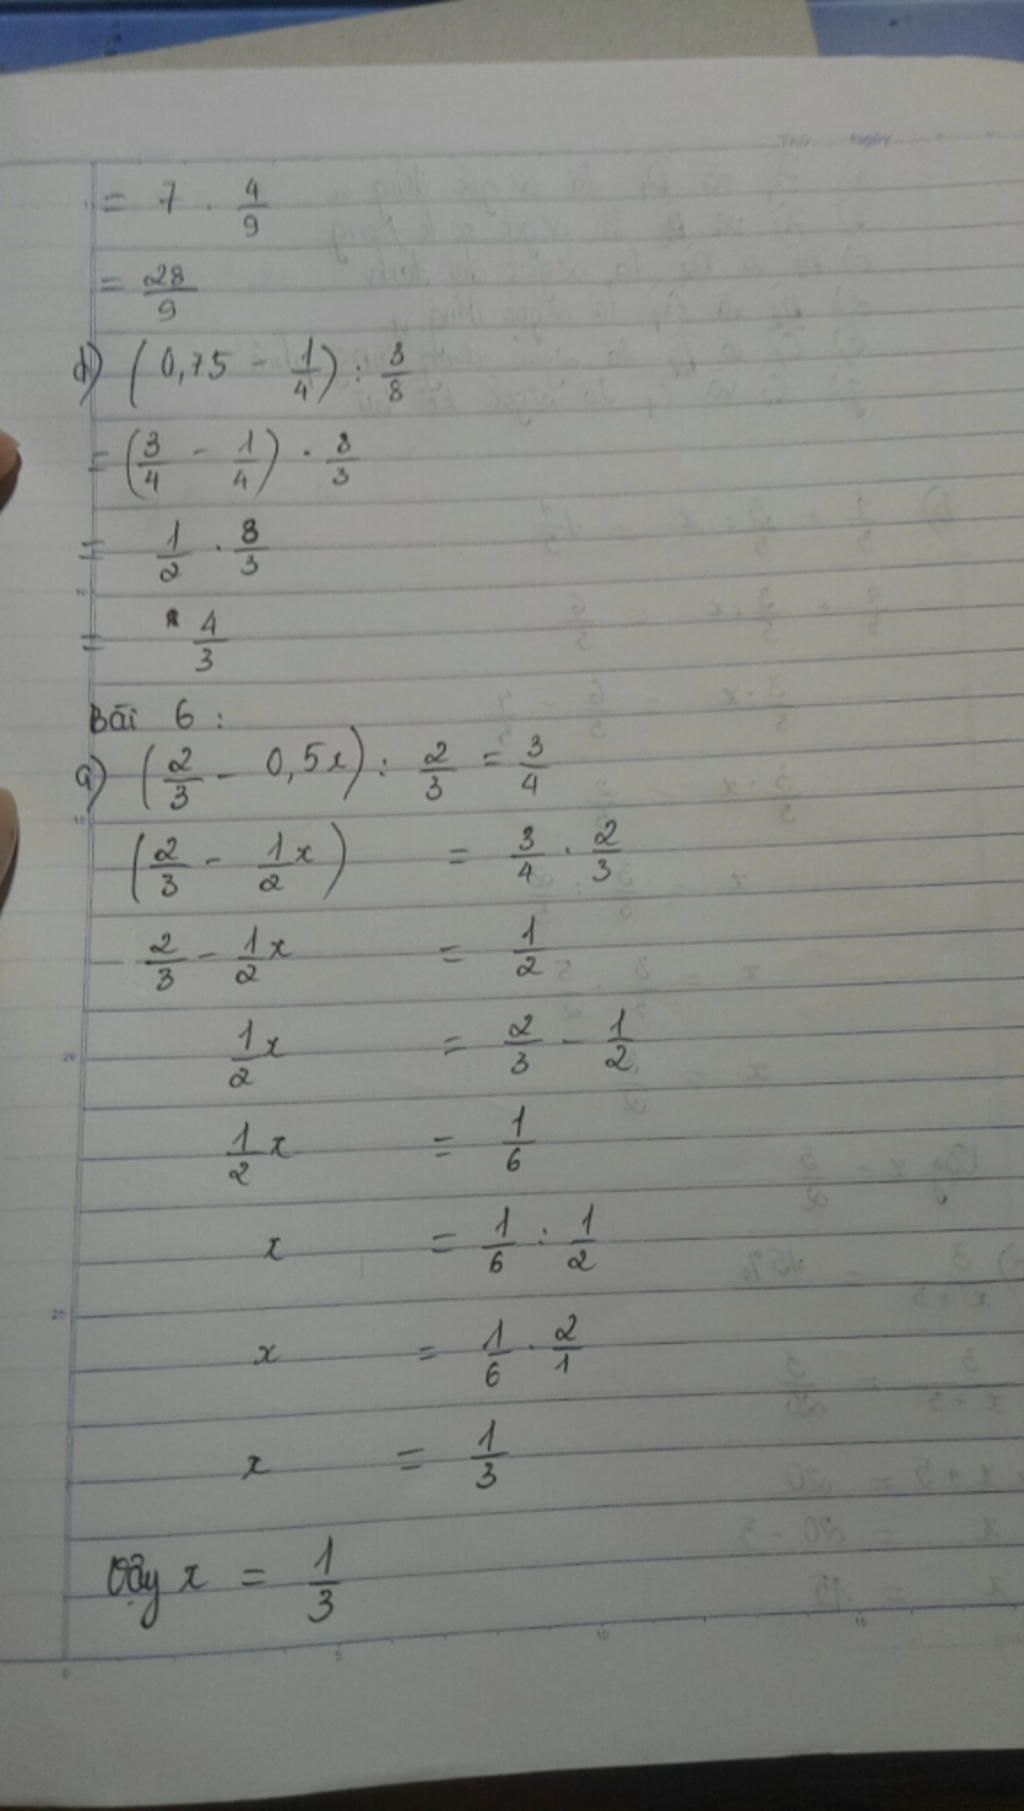 = 7 . 4/9
= 28/9
d) (0,75 - 1/4) : 3/8
= (3/4 - 1/4) . 8/3
= 1/2 . 8/3
= 4/3
Bài 6 :
a) (2/3 - 0,5x) : 2/3 = 3/4
(2/3 - 1/2 x) = 3/4 . 2/3
2/3 - 1/2 x = 1/2
1/2 x = 2/3 - 1/2
1/2 x = 1/6
x = 1/6 : 1/2
x = 1/6 . 2/1
x = 1/3
Vậy x = 1/3